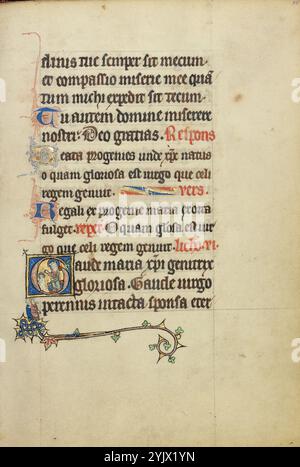 alnis tue semper sit mecum
et compassio miserie mee quā
tum michi expedit sit tecum
Tu autem domine miserere
nostri. Deo gratias. Respons
Beata progenies unde xp̄c natus
o quam gloriosa est uirgo que celi
regem genuit. vers.
Regali ex progenie maria exorta
fulget. repet. O quam glosa est uir
go que celi regem genuit. lectio.vi.
Gaude maria xp̄i genitrix
gloriosa. Gaude uirgo
perennis intacta sponsa eter
alamy
Image ID: 2YJX1YN
www.alamy.com